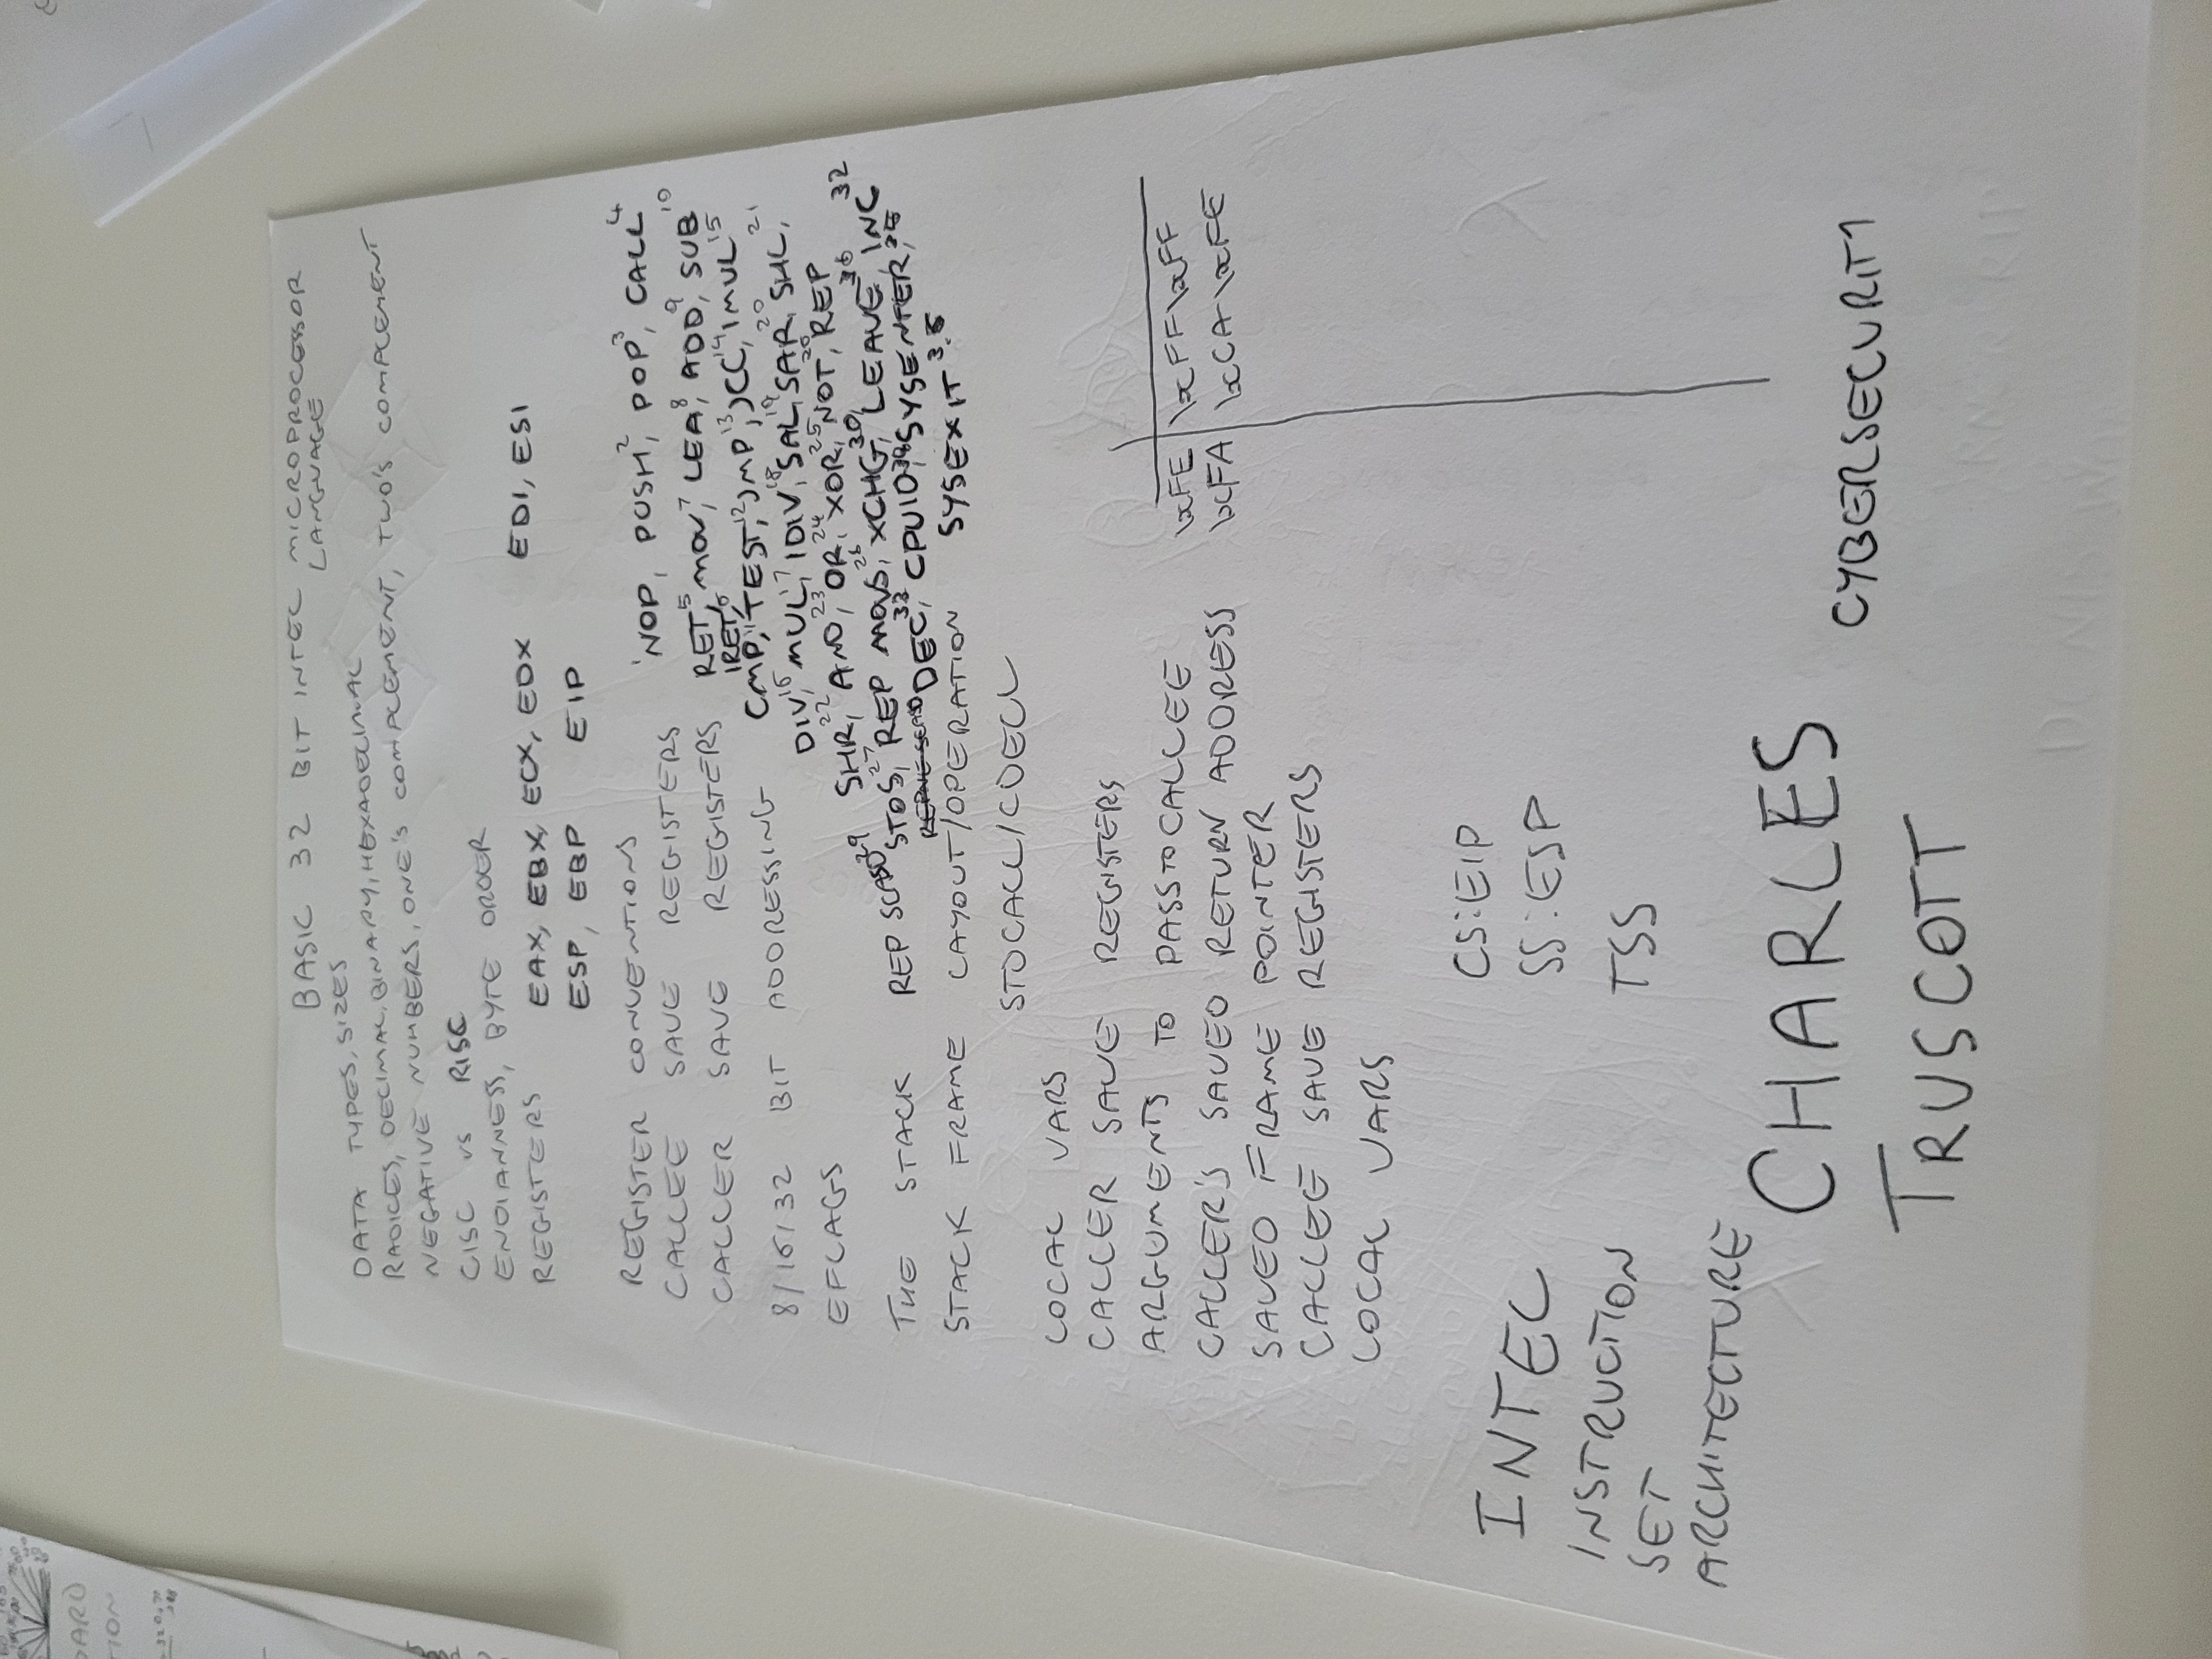 BASIC 32 BIT INTEL MICROPROCESSOR
LANGUAGE
DATA TYPES, SIZES
RADICES, DECIMAL, BINARY, HEXADECIMAL
NEGATIVE NUMBERS, ONE'S COMPLEMENT, TWO'S COMPLEMENT
CISC vs RISC
ENDIANNESS, BYTE ORDER
REGISTERS EAX, EBX, ECX, EDX EDI, ESI
ESP, EBP EIP
REGISTER CONVENTIONS
CALLEE SAVE REGISTERS
CALLER SAVE REGISTERS
8/16/32 BIT ADDRESSING
EFLAGS
THE STACK
STACK FRAME LAYOUT/OPERATION
'NOP, PUSH², POP³, CALL⁴
RET⁵, MOV⁷, LEA⁸, ADD⁹, SUB¹⁰
IRET⁶
CMP,¹¹ TEST,¹² JMP¹³, JCC,¹⁴ IMUL¹⁵
DIV,¹⁶ MUL,¹⁷ IDIV,¹⁸ SAL,¹⁹ SAR,²⁰ SHL,²¹
SHR,²² AND,²³ OR,²⁴ XOR,²⁵ NOT,²⁶ REP
REP SCASD²⁹ STOS,²⁷ REP MOVS,²⁸ XCHG,³⁰ LEAVE, INC³²
REPNE SCASD DEC,³³ CPUID, SYSENTER,
SYSEXIT
STDCALL/CDECL
LOCAL VARS
CALLER SAVE REGISTERS
ARGUMENTS TO PASS TO CALLEE
CALLER'S SAVED RETURN ADDRESS
SAVED FRAME POINTER
CALLEE SAVE REGISTERS
LOCAL VARS
\xFE \xFF\xFF
\xFA \xCA\xFE
CS:EIP
SS:ESP
TSS
INTEL
INSTRUCTION
SET
ARCHITECTURE
CHARLES
TRUSCOTT
CYBERSECURITY